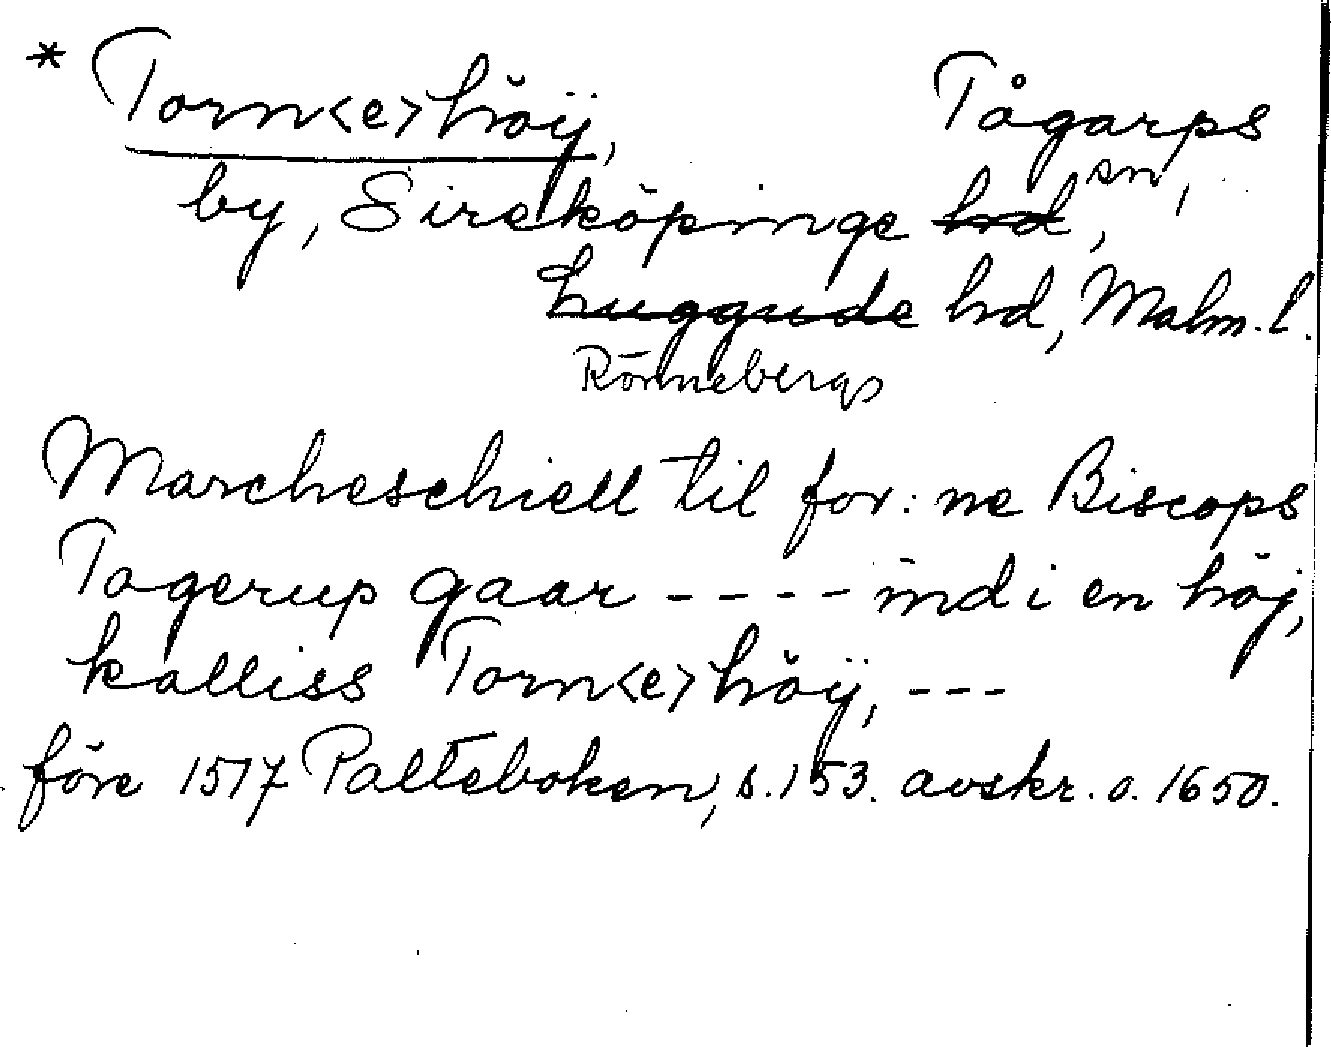 * Torn<e>höÿ, Tågarps
by, Sireköpinge hrd, sn,
Luggude hrd, Malm. l.
Rönnebergs
Marcheschiell til for: ne Biscops
Tagerup gaar ---- ind i en höj,
kalliss Torn<e>höÿ, ---
före 1517 Palteboken, s. 153. avskr. o. 1650.